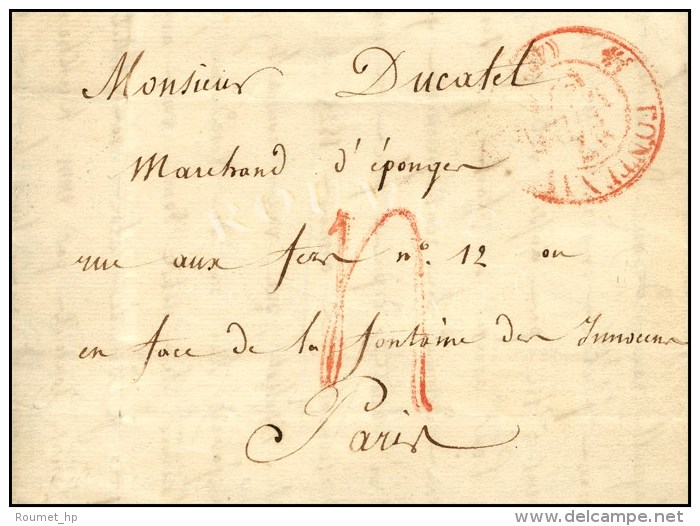 Monsieur Ducatel
Marchand d'éponges
rue aux fers n°. 12 ou
en face de la fontaine des Innocens
Paris
Roumet_hp
delcampe.net